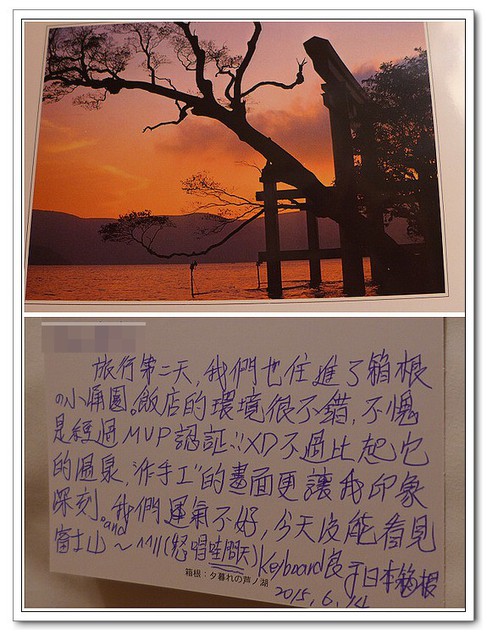 旅行第二天,我們也住進了箱根
の小涌園。飯店的環境很不錯,不愧
是經過MVP認証!! XD 不過比起它
的溫泉,"作手工"的畫面更讓我印象
深刻。and我們運氣不好,今天沒能看見
富士山~ ~111(怒唱哇問天)
Keyboard良于日本箱根
2015.6.14
箱根:夕暮れの芦ノ湖